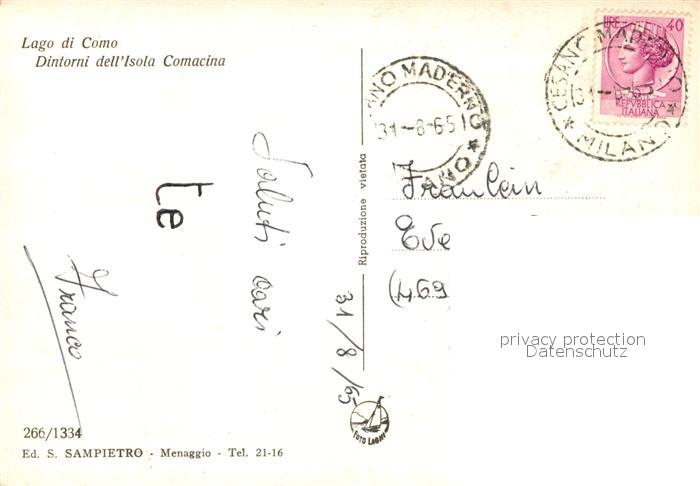 Lago di Como
Dintorni dell'Isola Comacina
LIRE 40
REPVBBLICA
ITALIANA
CESANO MADERNO
31-8-65
* MILANO *
ANO MADERNO
31-8-65
ANO *
Saluti cari
31/8/65
Franco
te
Riproduzione vietata
Fräulein
Eve
(469
privacy protection
Datenschutz
FOTO LARIO
266/1334
Ed. S. SAMPIETRO - Menaggio - Tel. 21-16